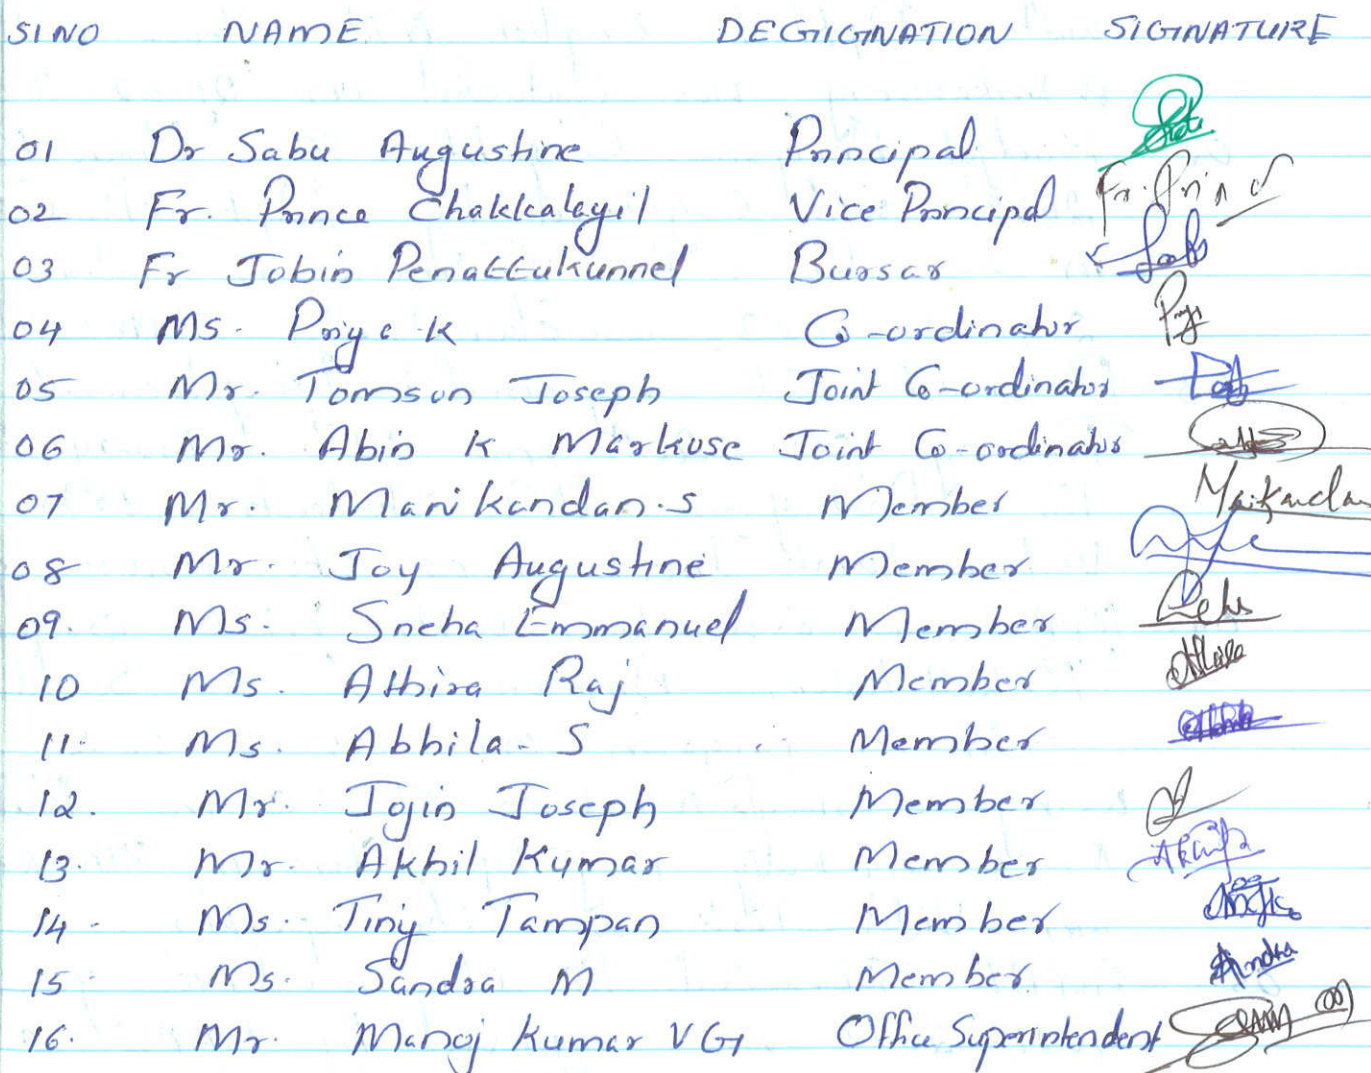 SI NO NAME DEGIGNATION SIGNATURE
01 Dr Sabu Augustine Principal
02 Fr. Prince Chakkalayil Vice Principal Fr. Prin
03 Fr Jobin Penattukunnel Bursar
04 Ms. Priya K Co-ordinator
05 Mr. Tomson Joseph Joint Co-ordinator
06 Mr. Abin K Markose Joint Co-ordinator
07 Mr. Manikandan.S Member Manikandan
08 Mr. Joy Augustine Member
09. Ms. Sneha Emmanuel Member
10 Ms. Athira Raj Member
11. Ms. Abhila-S Member
12. Mr. Jojin Joseph Member
13. Mr. Akhil Kumar Member
14. Ms. Tiny Tampan Member
15 Ms. Sandra M Member
16. Mr. Manoj Kumar V G Office Superintendent